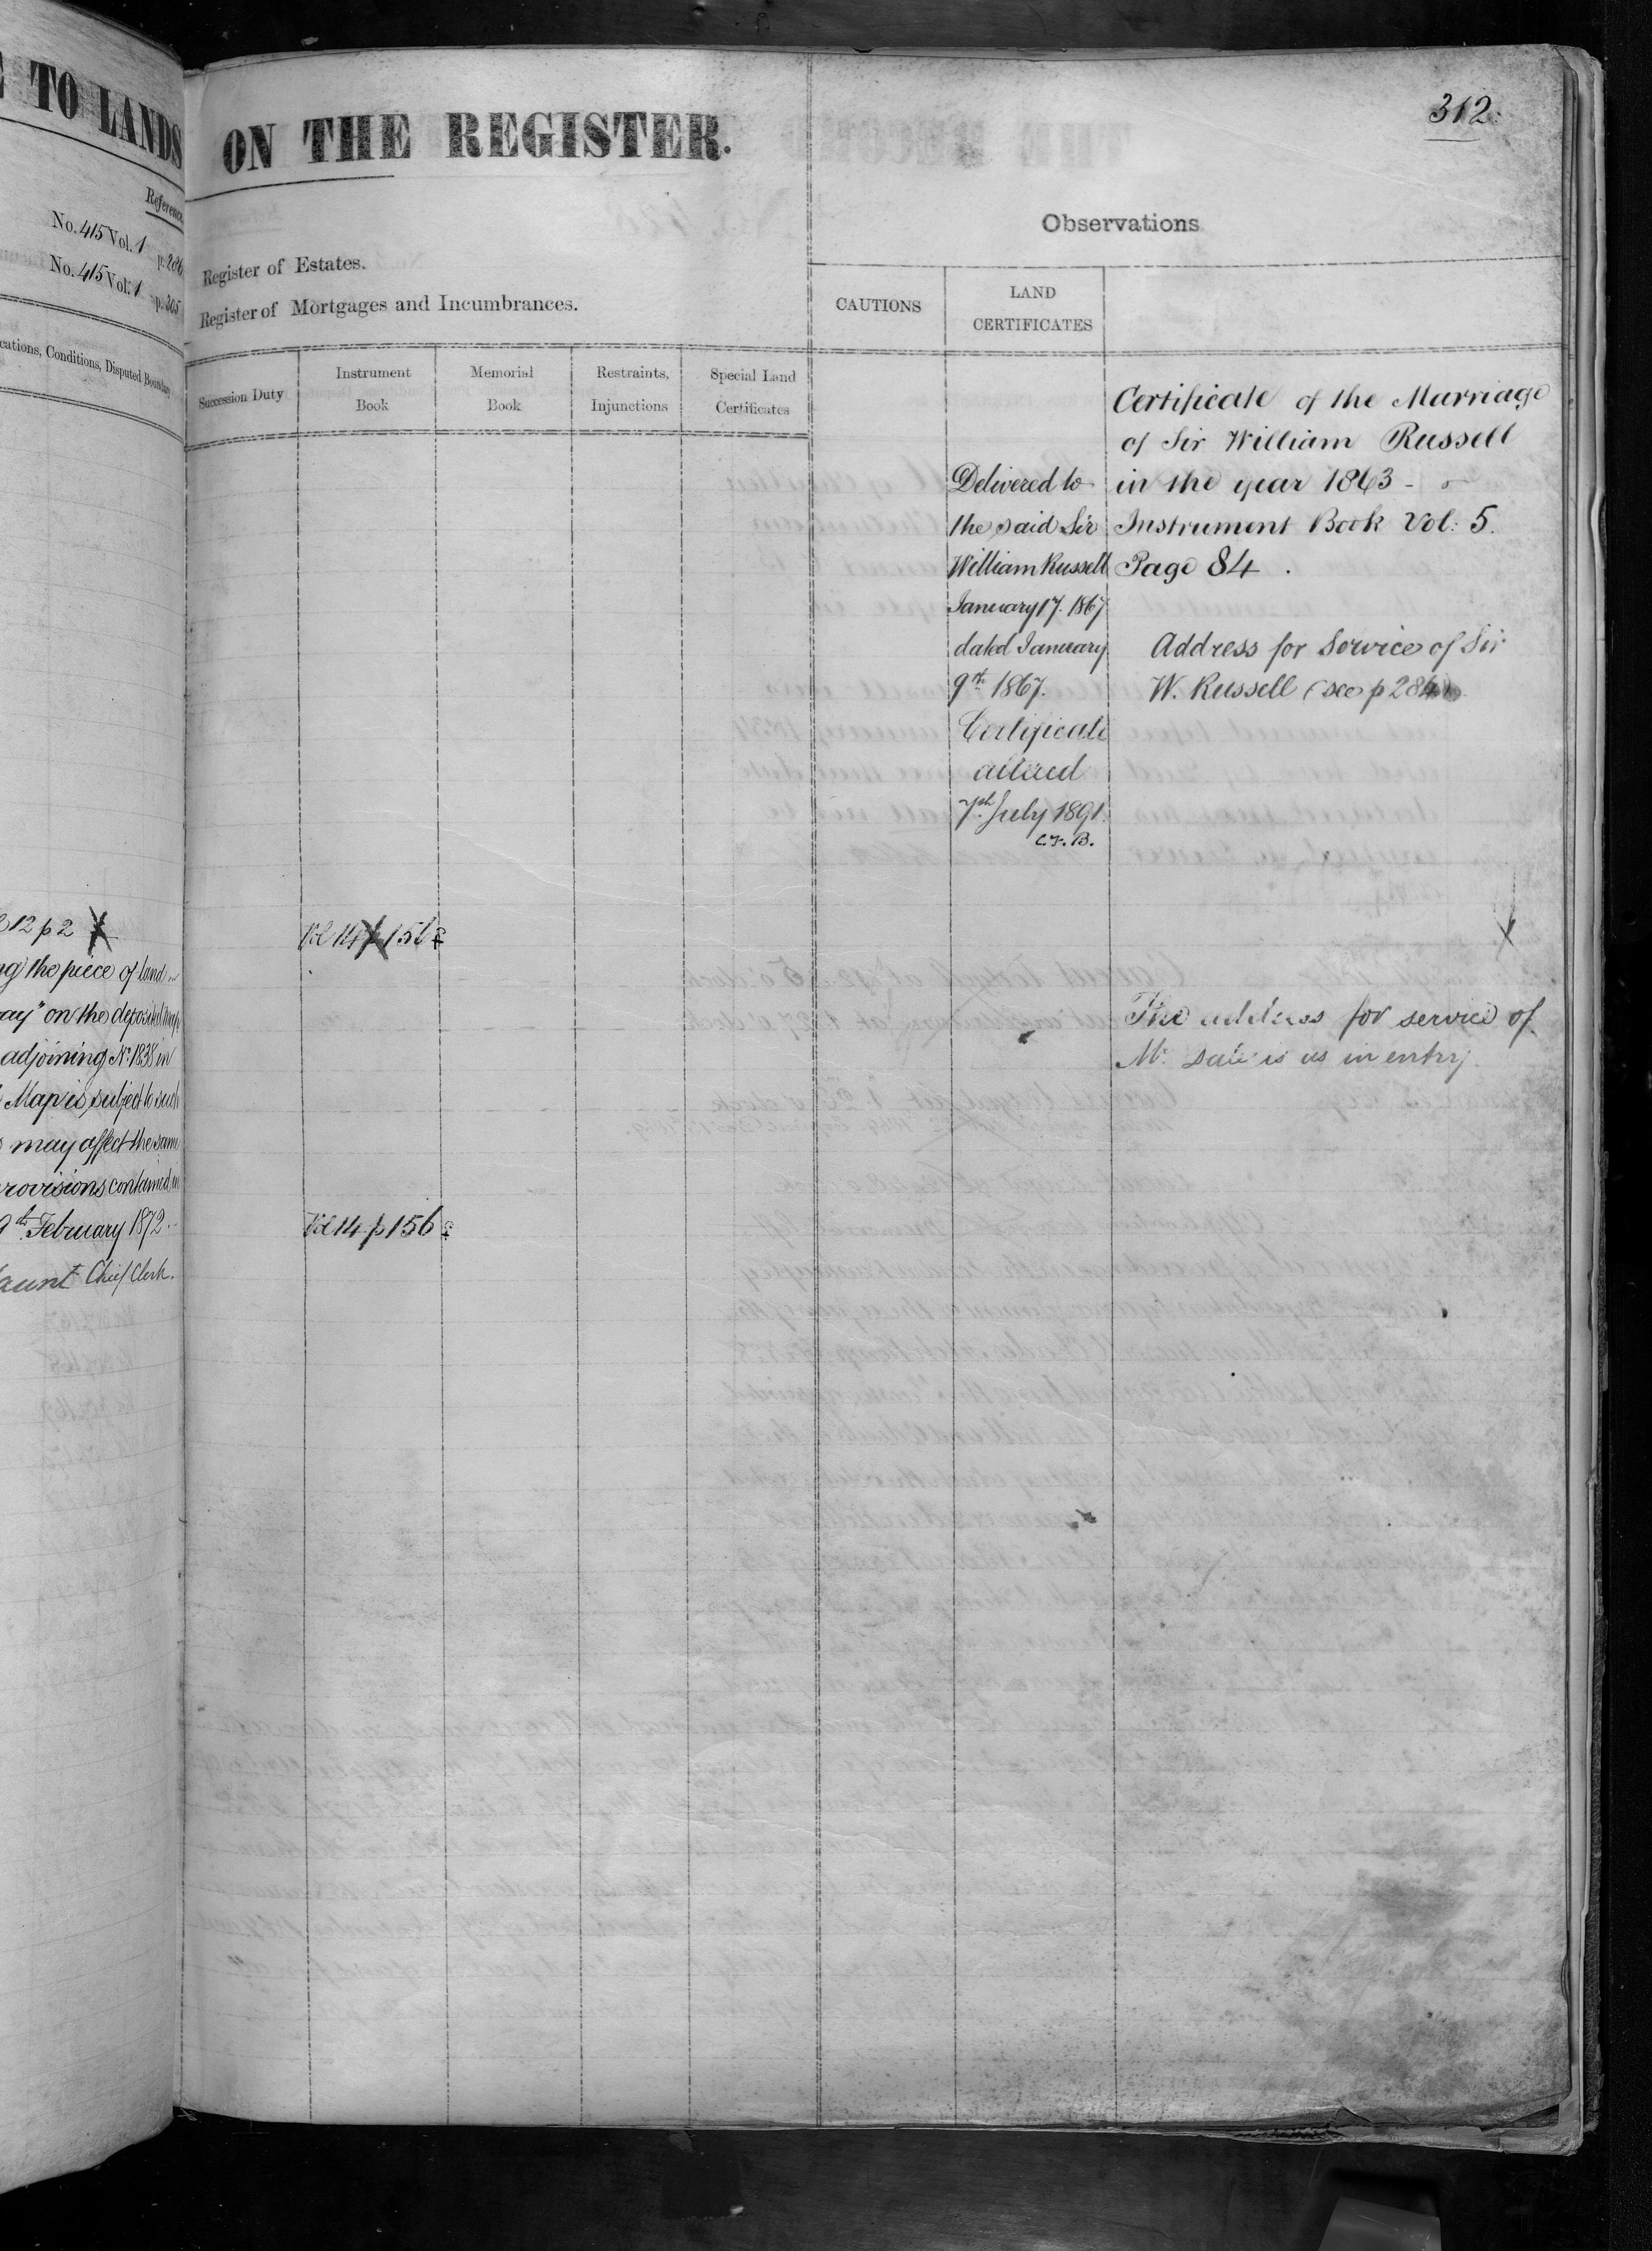 TO LANDS
Reference
No. 415 Vol. 1 p. 286
No. 415 Vol. 1 p. 305
cations, Conditions, Disputed Boundary
12 p 2
ng the piece of land
ay" on the deposited Map
adjoining No. 1838 in
Map is subject to such
may affect the same
rovisions contained in
9th February 1872.
aunt Chief Clerk.
ON THE REGISTER.
312.
Register of Estates.
Register of Mortgages and Incumbrances.
Succession Duty
Instrument
Book
Memorial
Book
Restraints,
Injunctions
Special Land
Certificates
Vol 14 p 156
Vol 14 p 156
Observations
CAUTIONS
LAND
CERTIFICATES
Delivered to
the said Sir
William Russell
January 17. 1867
dated January
9th 1867.
Certificate
altered
7th July 1891.
C.F.B.
Certificate of the Marriage
of Sir William Russell
in the year 1863 -
Instrument Book Vol: 5.
Page 84.
Address for Service of Sir
W. Russell (see p 284)
The address for service of
Mr. Sale is as in entry